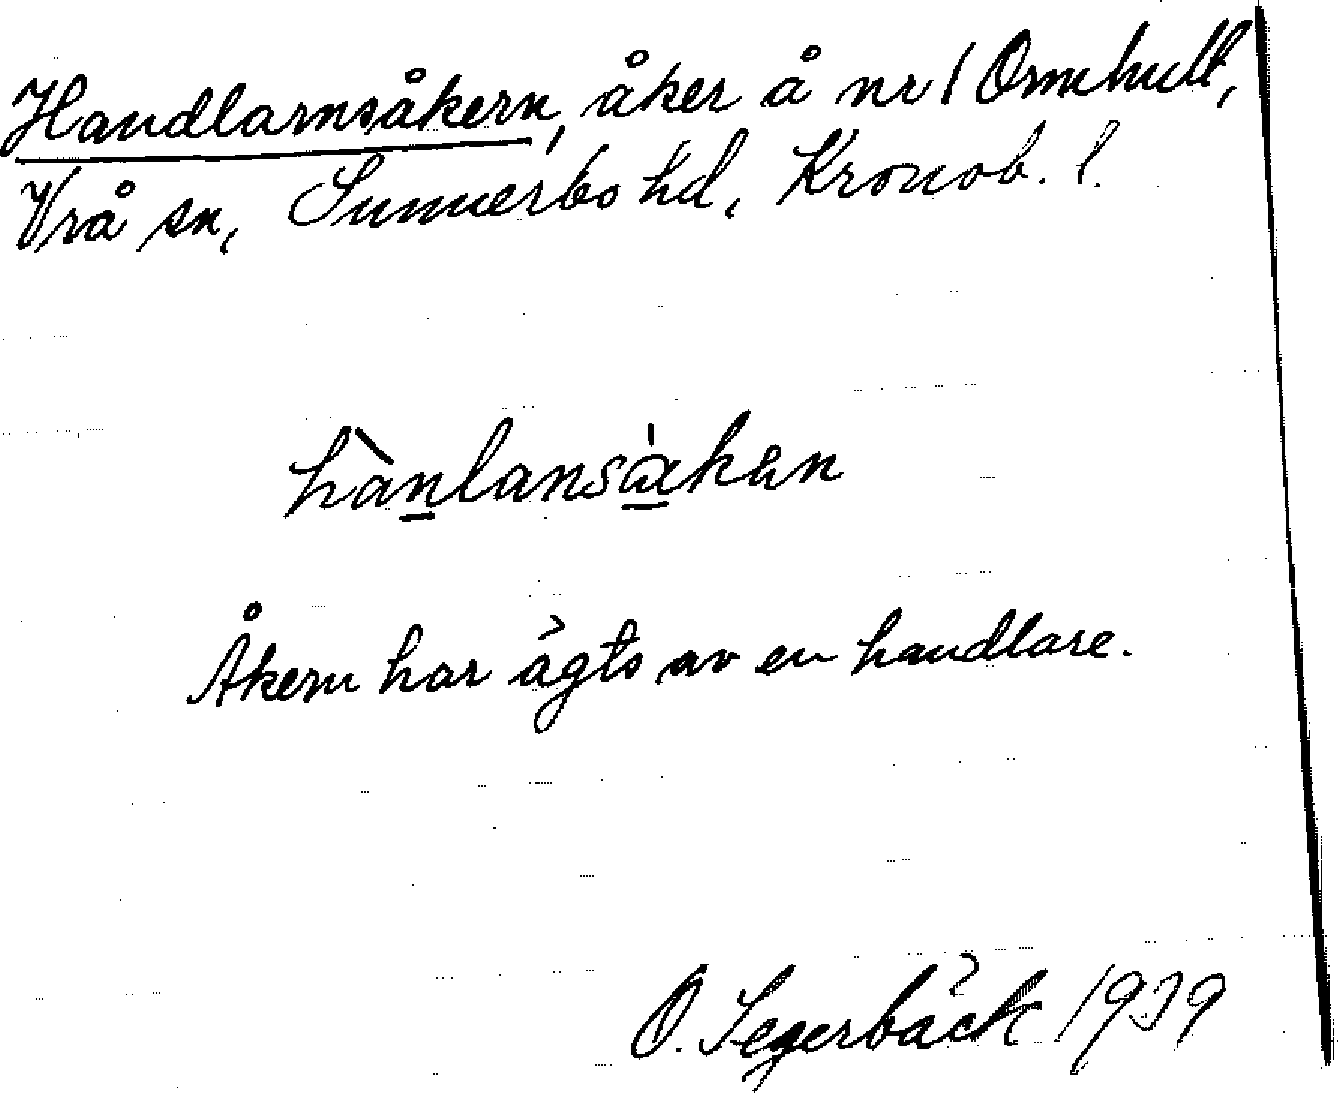 Handlarnsåkern, åker å nr 1 Ormhult,
Vrå sn, Sunnerbo hd, Kronob. l.
hànlansàkån
Åkern har ägts av en handlare.
O. Segerbäck 1939